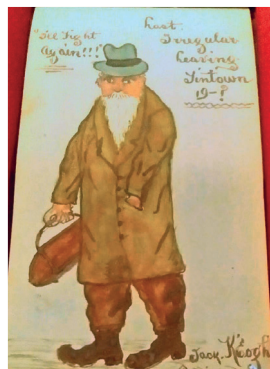 "I'll Fight
Again!!!"
Last
Irregular
Leaving
Tintown
19-?
Jack. Keogh